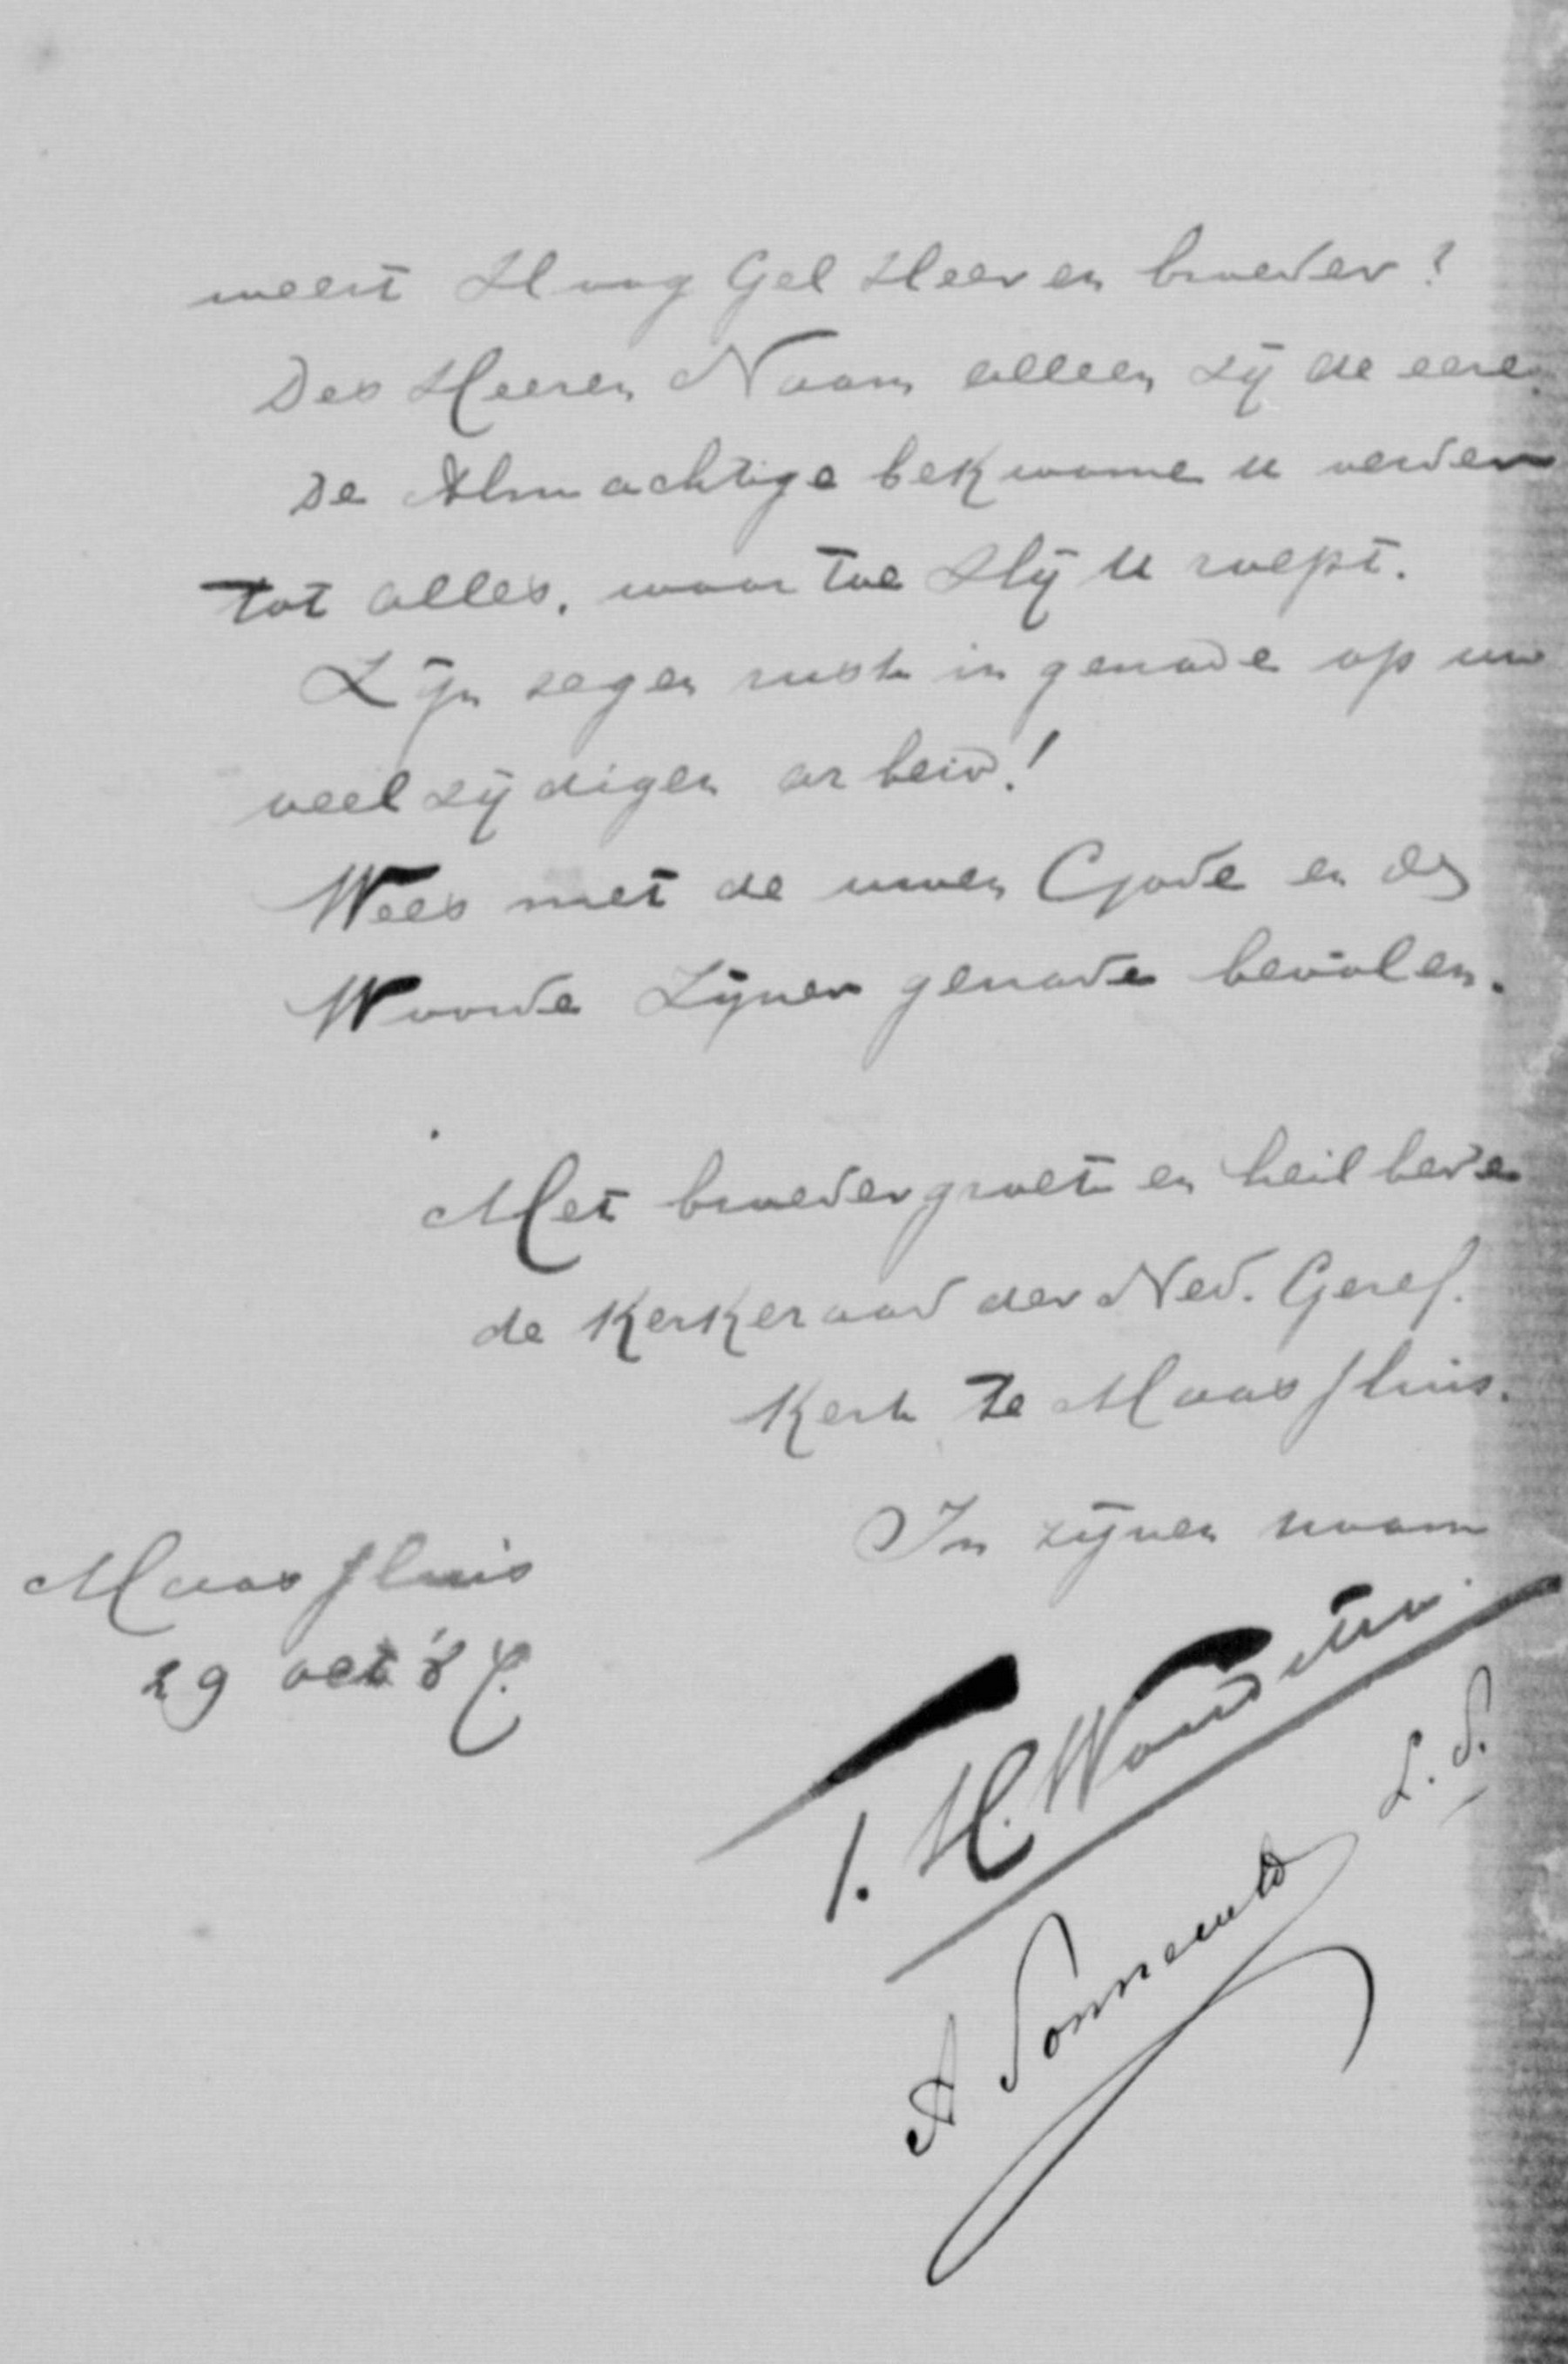 meert Hoog Gel Heer en broeder!
Des Heeren Naam alleen zij de eere.
De Almachtige bekwame u verder
tot alles, waar toe Hij U roept.
Zijn zegen ruste in genade op uw
veelzijdigen arbeid!
Wees met de uwen Gode en den
Woorde Zijner genade bevolen.
Met broedergroete en heilbede
de Kerkeraad der Ned. Geref.
Kerk te Maassluis.
In zijnen naam
Maassluis
29 oct '87.
T. H. Woudstra
L. S.
A Sonneveld